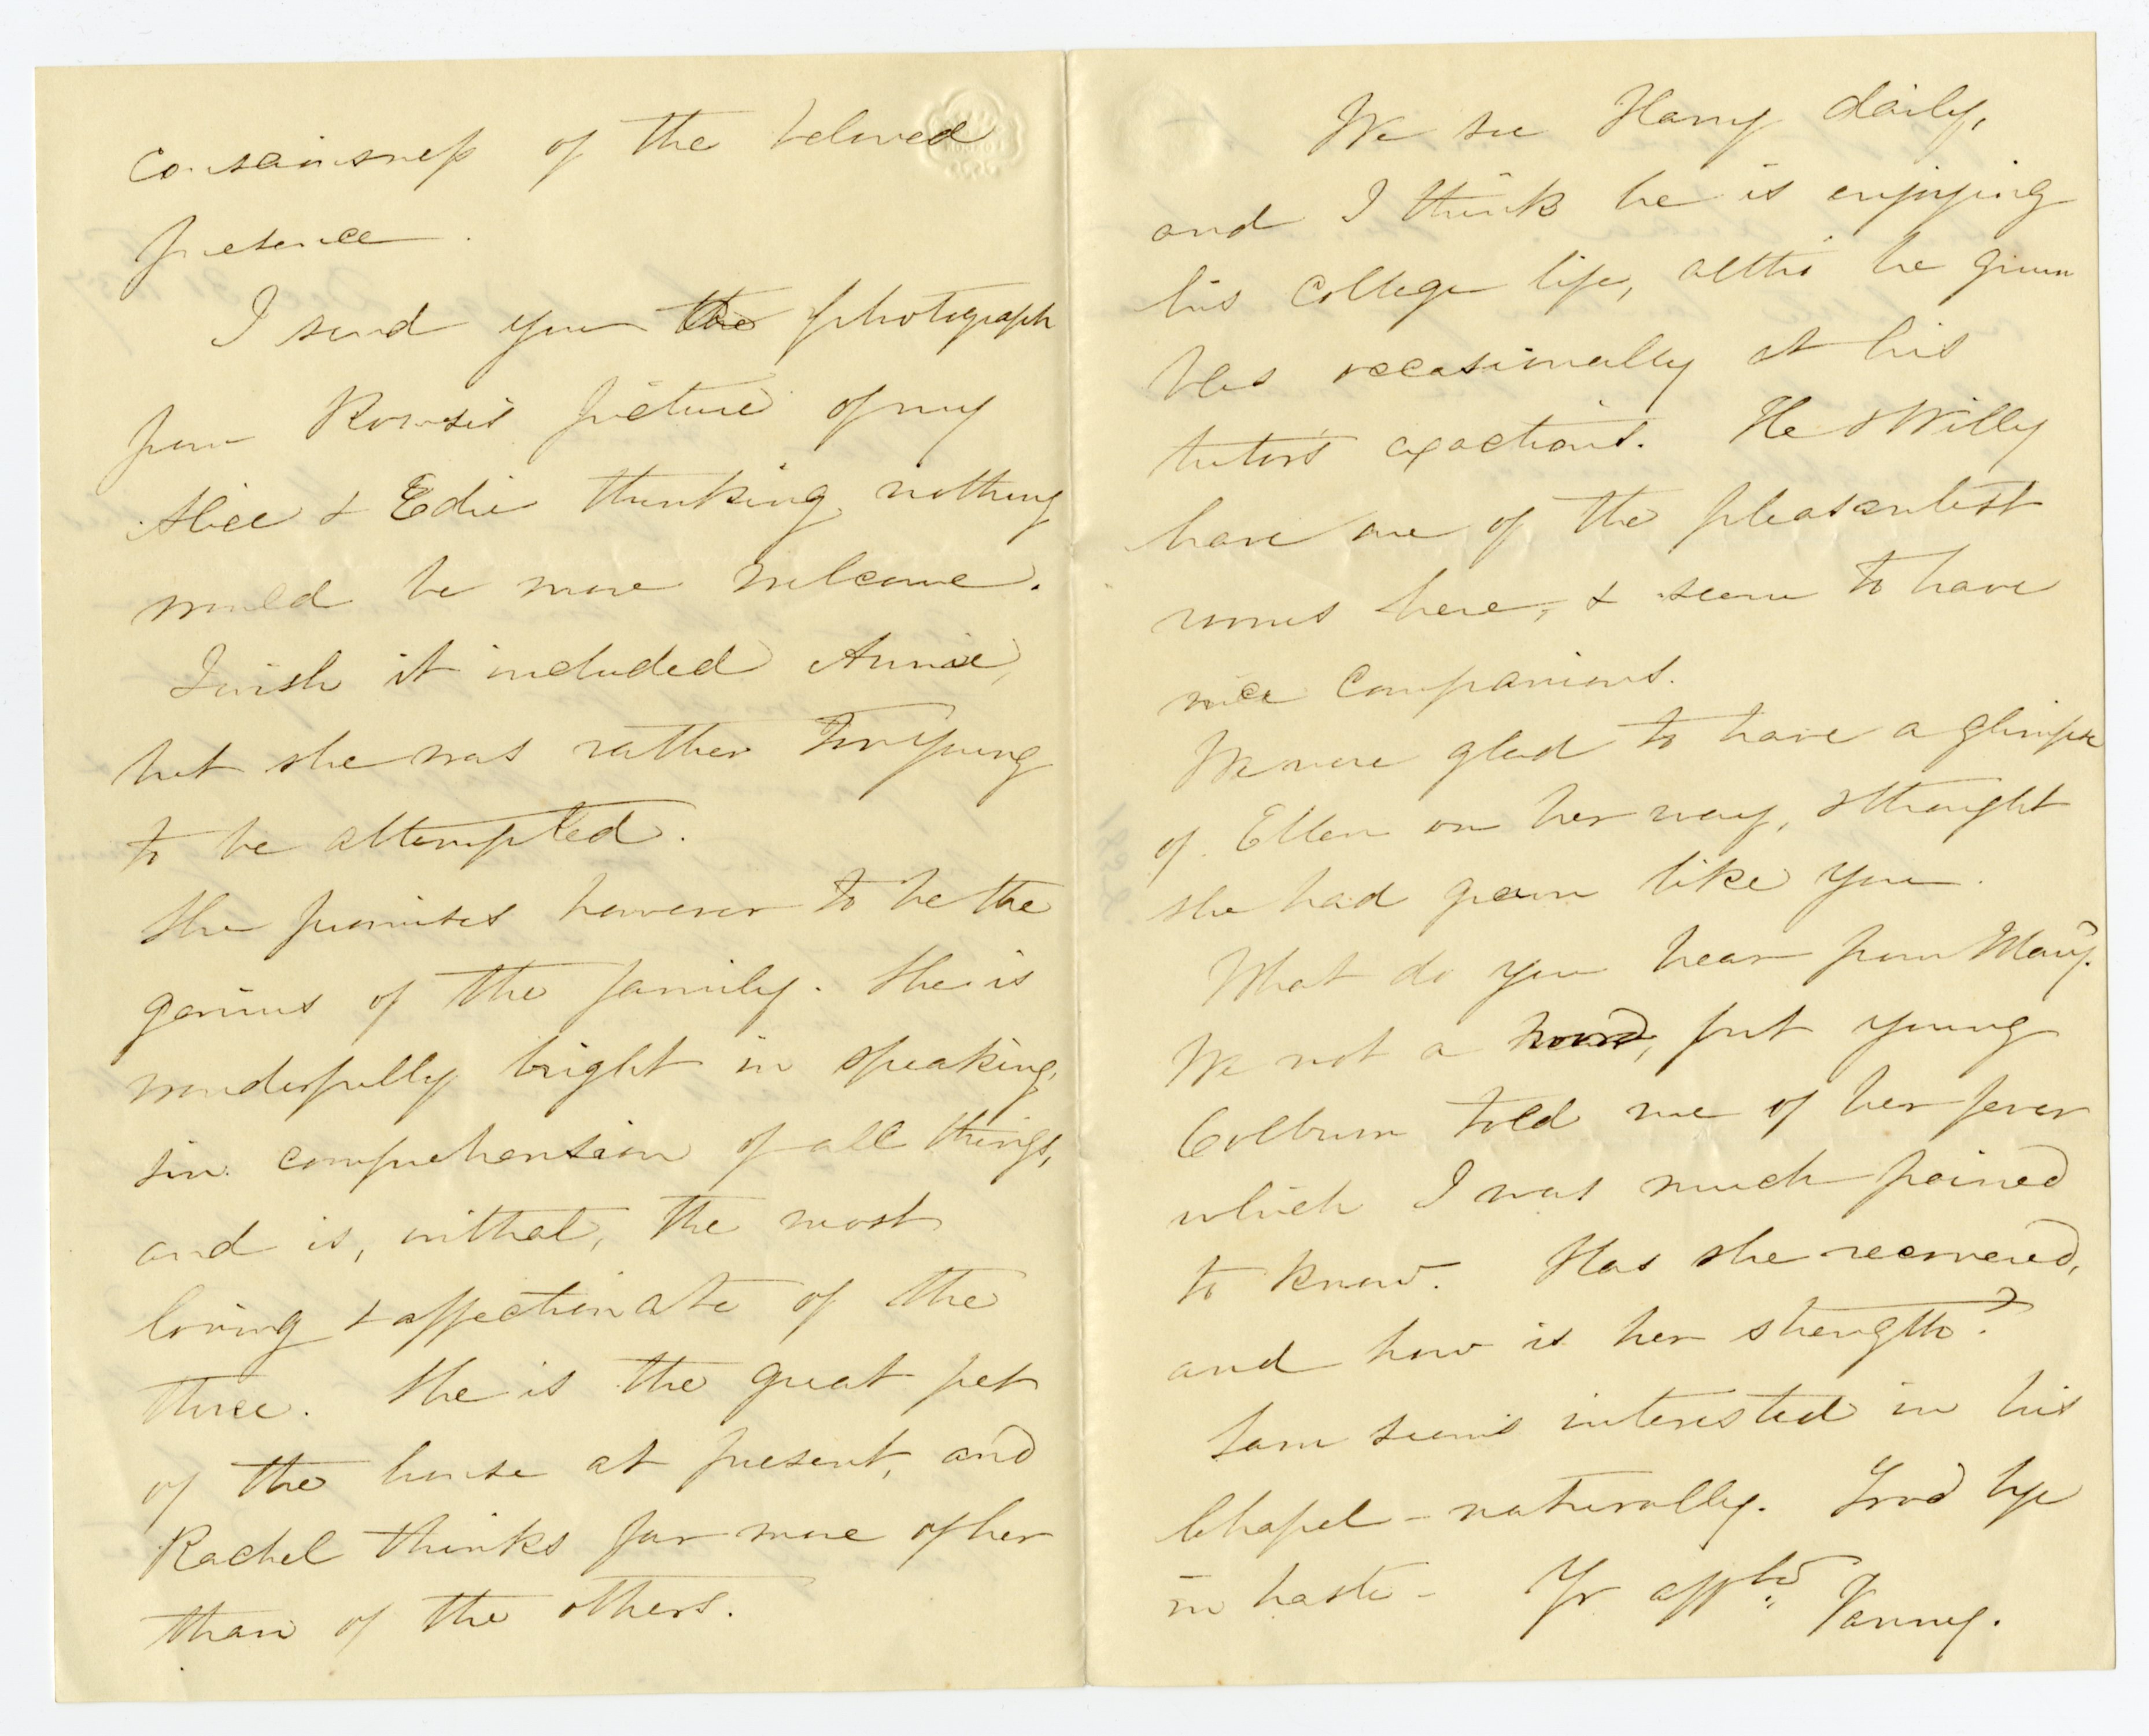 consciousness of the beloved
presence.
I send you the photograph
from Rowse's picture of my
Alice & Edie thinking nothing
would be more welcome.
I wish it included Annie,
but she was rather too young
to be attempted.
She promises however to be the
genius of the family. She is
wonderfully bright in speaking,
& in comprehension of all things,
and is, withal, the most
loving & affectionate of the
three. She is the great pet
of the house at present, and
Rachel thinks far more of her
than of the others.
We see Harry daily,
and I think he is enjoying
his College life, altho' he grum
bles occasionally at his
tutor's exactions. He & Willy
have one of the pleasantest
rooms here, & seem to have
nice companions.
We were glad to have a glimpse
of Ellen on her way, & thought
she had grown like you.
What do you hear from Mary.
We not a word, but young
Colburn told me of her fever
which I was much pained
to know. Has she recovered,
and how is her strength?
Sam seems interested in his
Chapel - naturally. Good bye
in haste - Yr affte Fanny.